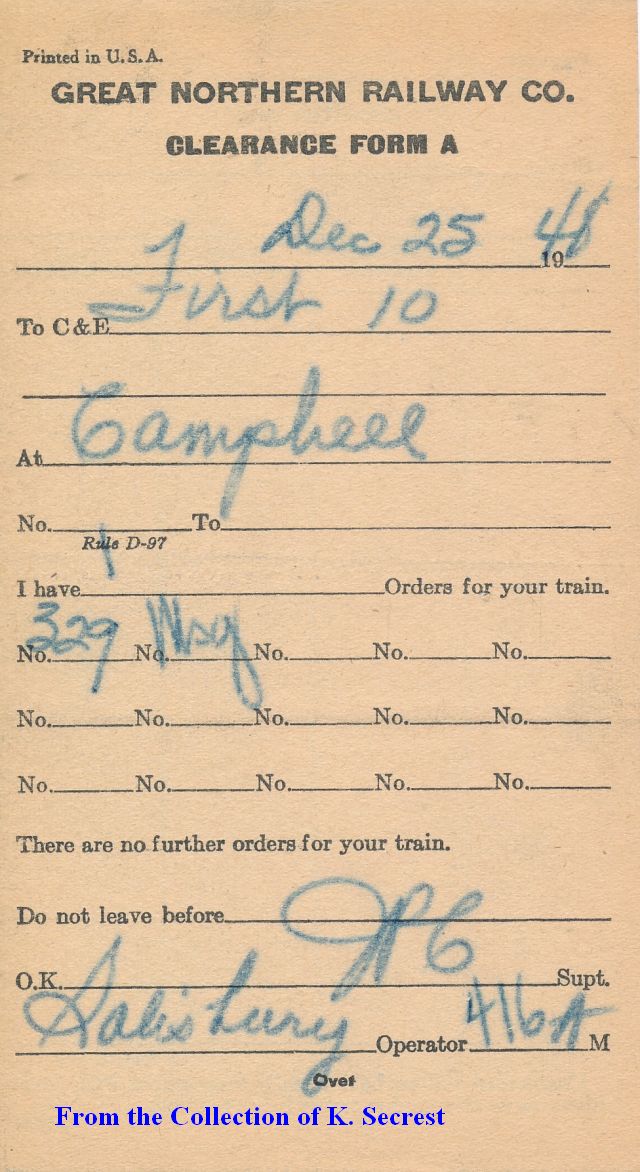 Printed in U.S.A.
GREAT NORTHERN RAILWAY CO.
CLEARANCE FORM A
Dec 25 1948
To C&E First 10
At Campbell
No. To
Rule D-97
I have 1 Orders for your train.
No. 329 No. Msg No. No. No.
No. No. No. No. No.
No. No. No. No. No.
There are no further orders for your train.
Do not leave before
O.K. JPC Supt.
Salisbury Operator 416A M
Over
From the Collection of K. Secrest